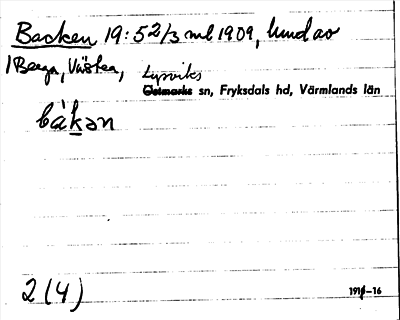 Backen 19:5 2/3 ml 1909, lund av
1 Berga, Västra,
Lysviks
Östmarks sn, Fryksdals hd, Värmlands län
bàkən
2 (4)
1914-16